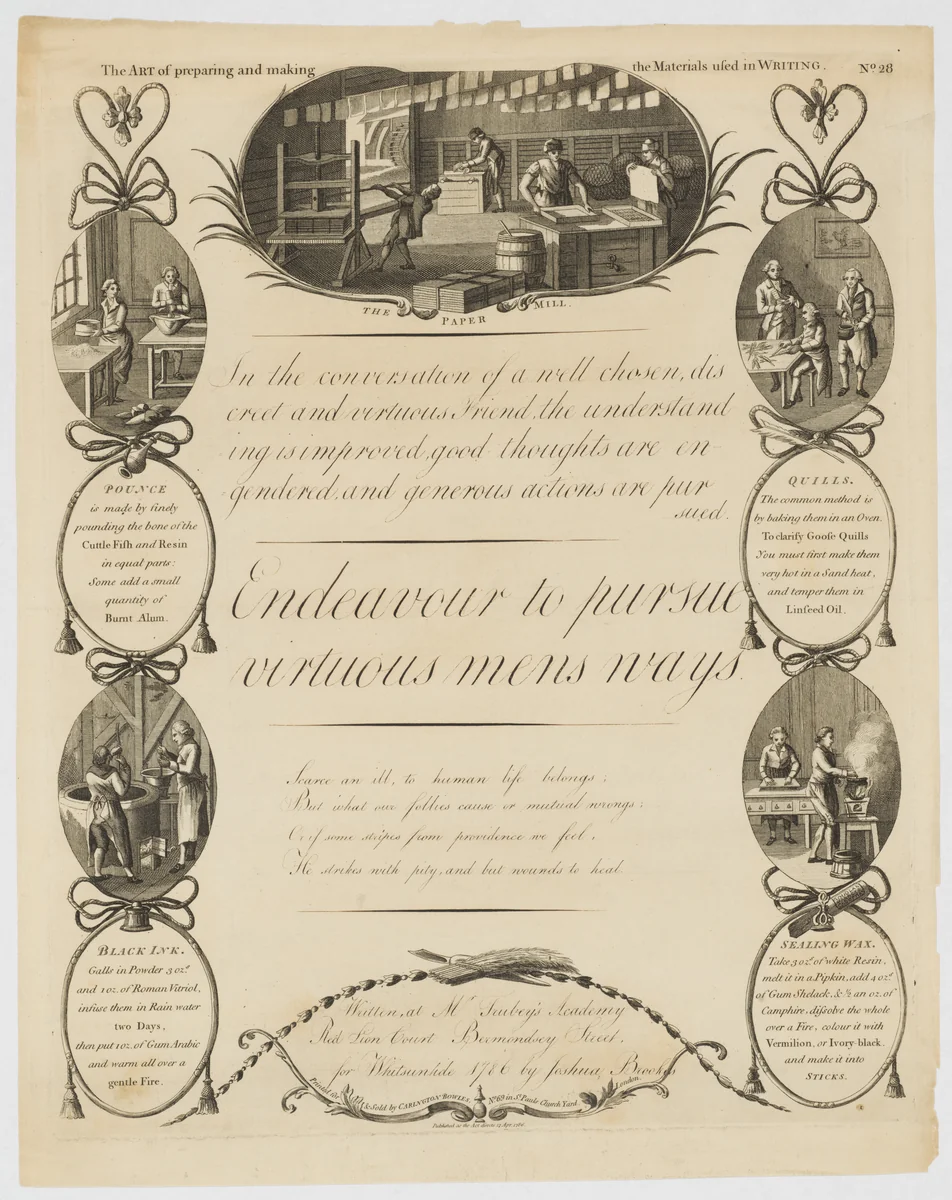 The ART of preparing and making
the Materials uſed in WRITING.
Nº. 28
THE PAPER MILL.
In the conversation of a well chosen, dis
creet and virtuous Friend, the understand
ing is improved, good thoughts are en-
gendered, and generous actions are pur
sued.
Endeavour to pursue
virtuous mens ways.
Scarce an ill, to human life belongs;
But what our follies cause or mutual wrongs:
Or if some stripes from providence we feel,
He strikes with pity, and but wounds to heal.
Written, at Mr
Academy
Red Lion Court Bermondsey Street.
for Whitsuntide 1786 by Joshua Brookes
Printed for & Sold by CARINGTON BOWLES, Nº. 69 in St. Pauls Church Yard, London.
Published as the Act directs
POUNCE
is made by finely
pounding the bone of the
Cuttle Fiſh and Resin
in equal parts:
Some add a small
quantity of
Burnt Alum.
BLACK INK.
Galls in Powder 3 oz.s
and 1 oz. of Roman Vitriol,
infuse them in Rain water
two Days,
then put 1 oz. of Gum Arabic
and warm all over a
gentle Fire.
QUILLS.
The common method is
by baking them in an Oven.
To clarify Goose Quills
You must first make them
very hot in a Sand heat,
and temper them in
Linſeed Oil.
SEALING WAX.
Take 3 oz.s of white Resin,
melt it in a Pipkin, add 4 oz.s
of Gum Shelack, & ½ an oz. of
Camphire, diſsolve the whole
over a Fire, colour it with
Vermilion, or Ivory-black.
and make it into
STICKS.